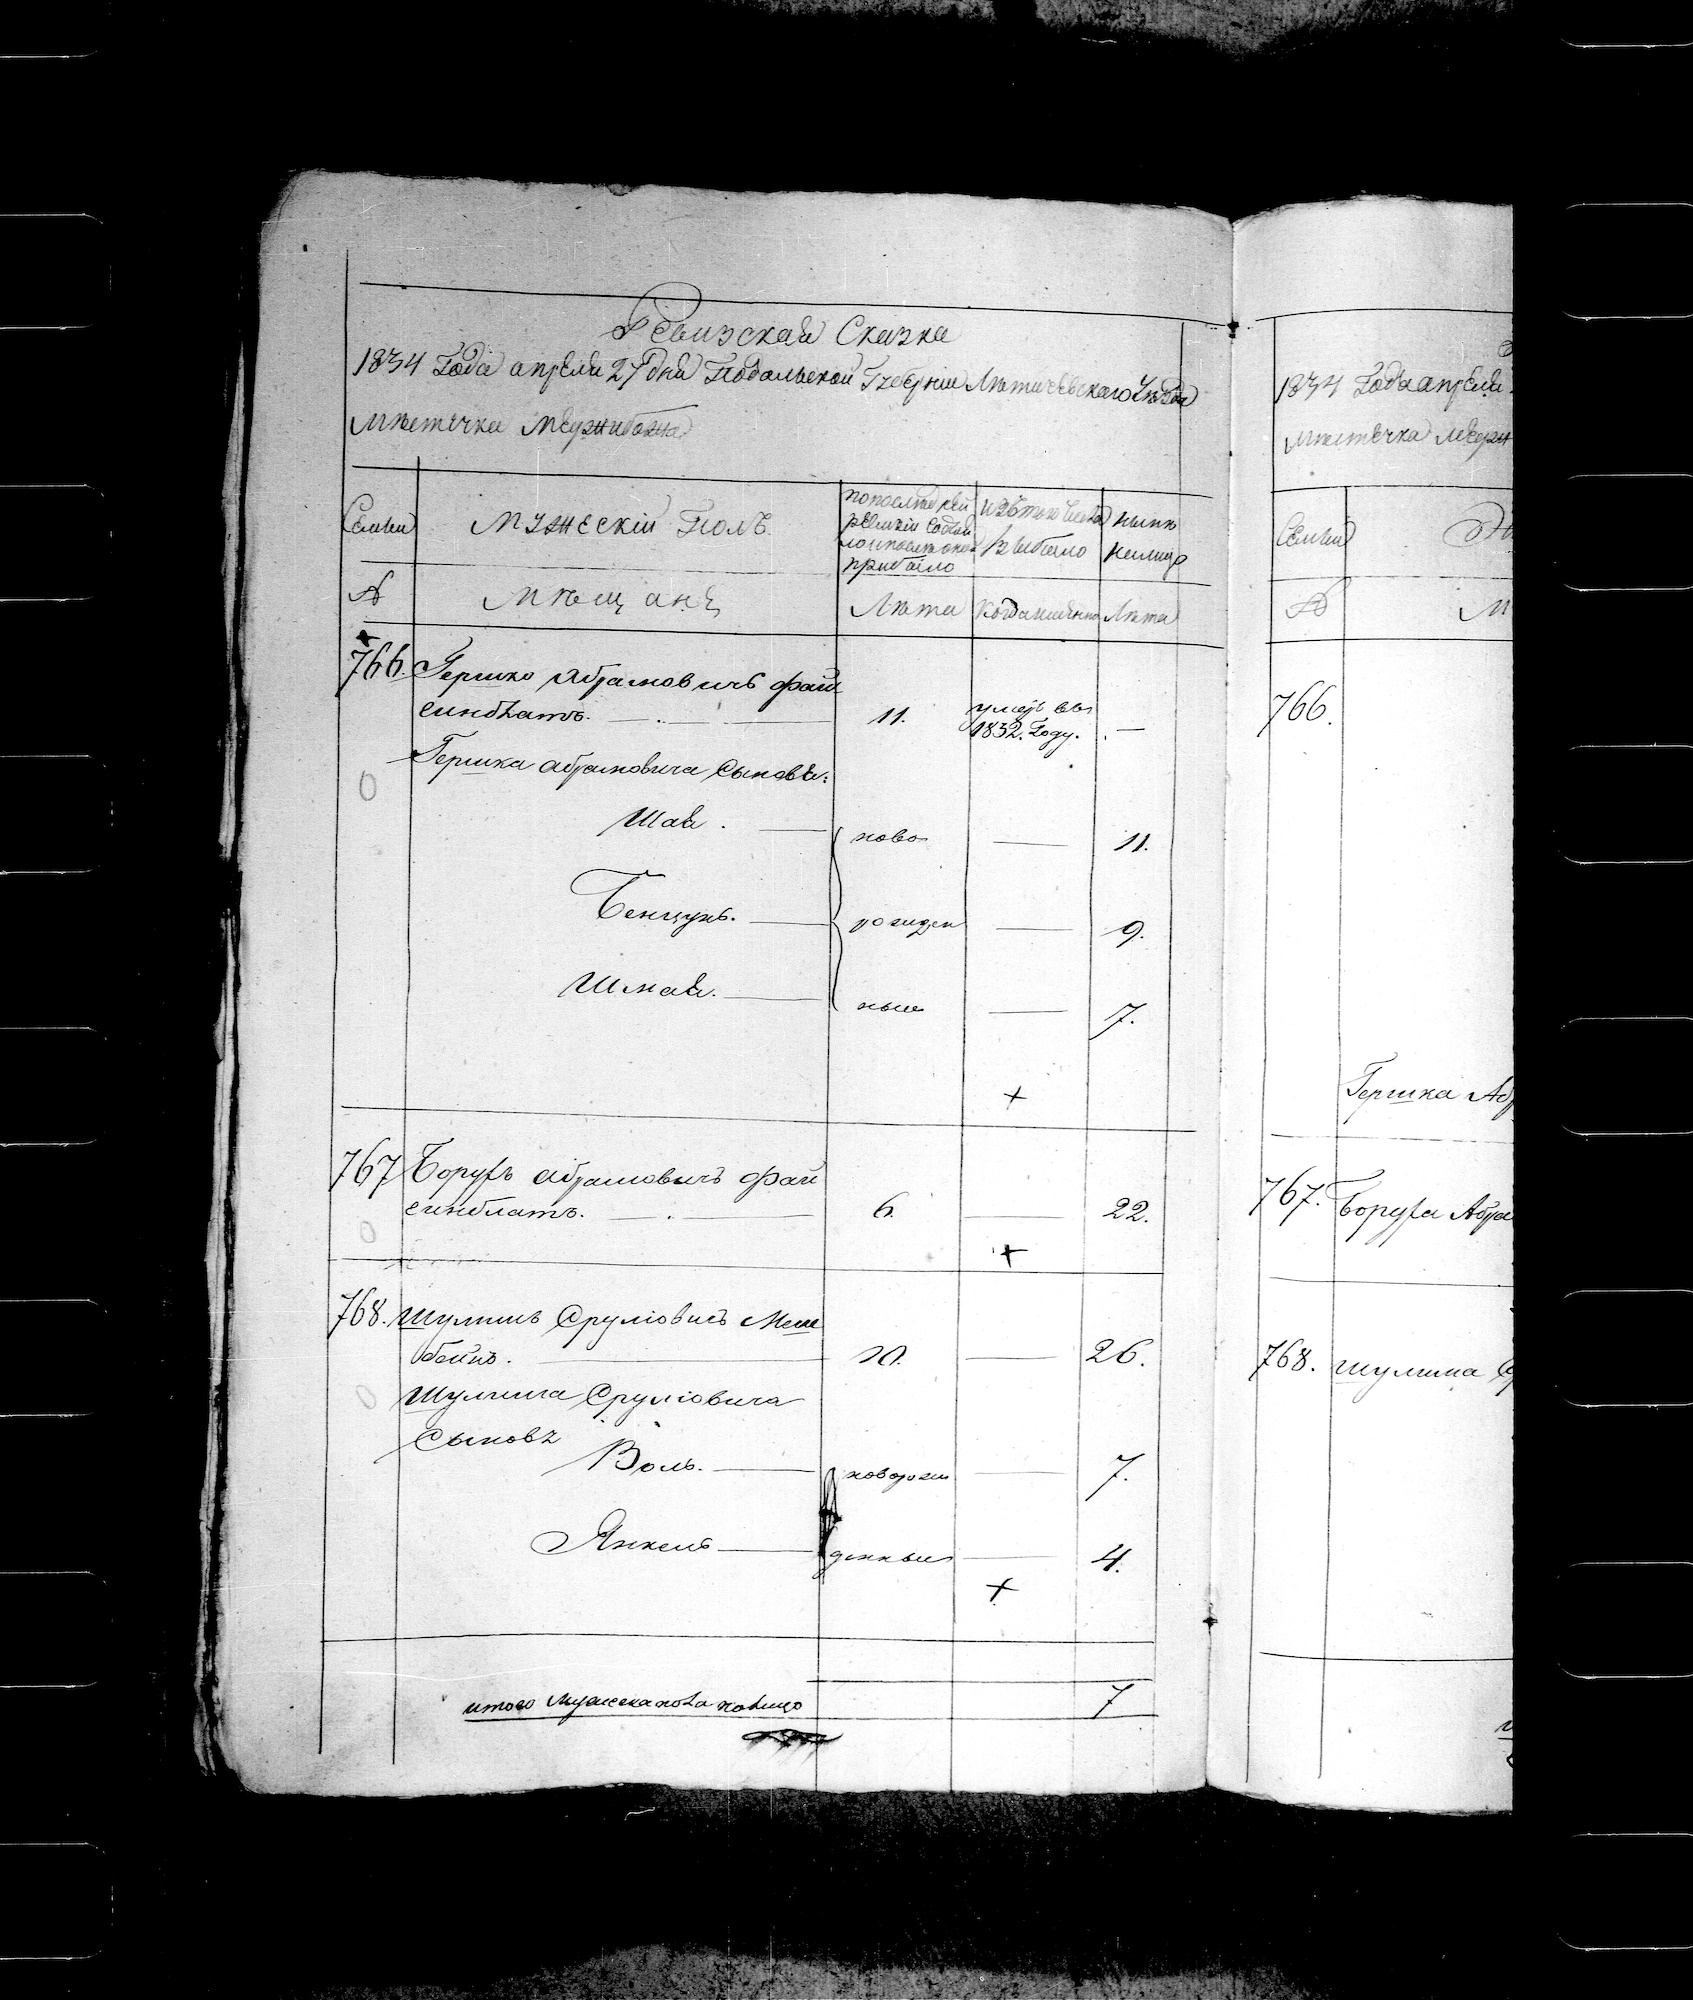 Ревизская Сказка
1834 Года апреля 27 дня Подольской Губернии Летичевского Уезда
Местечка Межибожа
Семьи
Мужескій Полъ
По последней ревизіи состояло и после оной прибыло
Изъ того числа выбыло
Ныне налицо
№
Мещане
Лета
Когда именно
Лета
766. Гершко Абрамовичъ Фай
синблатъ. 11. умеръ въ 1832. Году. —
Гершка Абрамовича Сыновья:
Шая. ново — 11.
Бенцунъ. рожден — 9.
Шмая. ные — 7.
+
767 Борухъ Абрамовичъ Фай
синблатъ. 6. — 22.
+
768. Шулимъ Сруліовичъ
10. — 26.
Шулима Сруліовича
Сыновя
Воль. новорож — 7.
Янкель денные — 4.
+
итого мужеска пола налицо 7
1834 Года апреля
местечка Меж
Семьи
№
М
766.
Гершка Аб
767. Боруха Абра
768. Шулима С